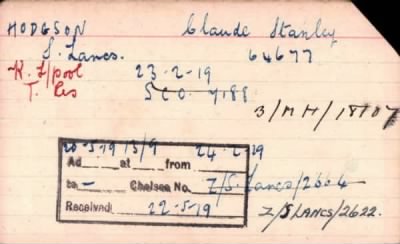 HODGSON Claude Stanley
S. Lancs. 64677
K. L/pool 23-2-19
T. Res 5CO 7188
3/MH/18107
20-5-19 13/9 24-2-19
Ad at from
to - Chelsea No. Z/S. Lancs/2604
Received 22-5-19
Z/S LANCS/2622.